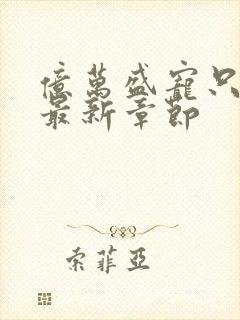 億萬盛寵只
最新章節
索菲亞